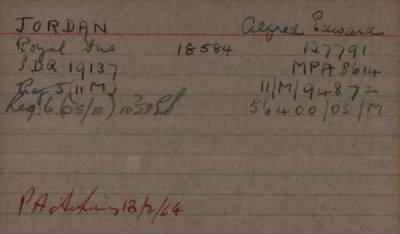 JORDAN Alfred Edward
Royal Fus 18584 127791
PDR 19137 MPA 8614
Reg 5/11 M) 11/M/94872
Reg. 6 (OS/M) 56400/OS/M
13/2/64